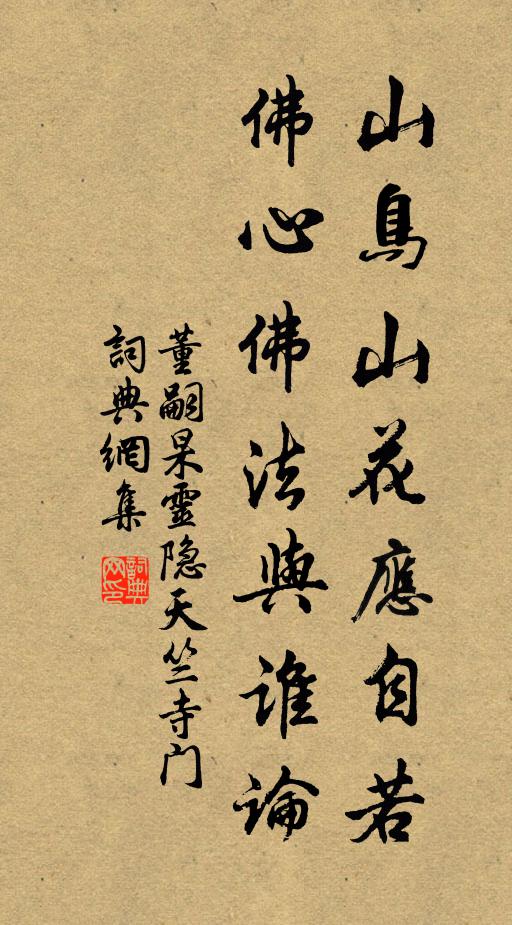 山鳥山花應自若
佛心佛法與誰論
董嗣杲靈隐天竺寺门
詞典網集
詞典網印